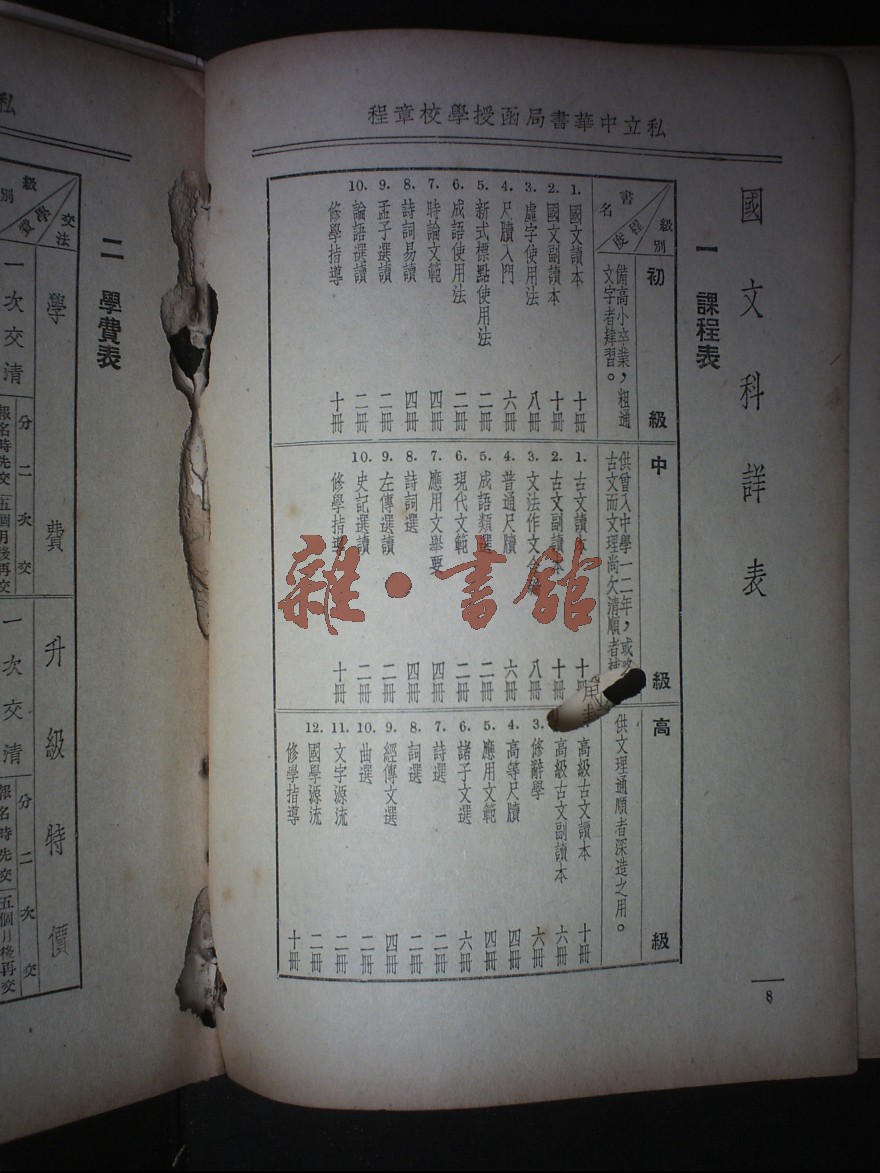 私立中華書局函授學校章程
國文科詳表
一 課程表
級別
程度
書名
初級
備高小卒業，粗通
文字者肄習。
1. 國文讀本 十冊
2. 國文副讀本 十冊
3. 虛字使用法 八冊
4. 尺牘入門 六冊
5. 新式標點使用法 二冊
6. 成語使用法 二冊
7. 時論文範 四冊
8. 詩詞易讀 四冊
9. 孟子選讀 二冊
10. 論語選讀 二冊
修學指導 十冊
中級
供曾入中學一二年，或略
古文而文理尚欠清順者
1. 古文讀本 十冊
2. 古文副讀本 十冊
3. 文法作文 八冊
4. 普通尺牘 六冊
5. 成語類選 二冊
6. 現代文範 二冊
7. 應用文舉要 四冊
8. 詩詞選 四冊
9. 左傳選讀 二冊
10. 史記選讀 二冊
修學指導 十冊
高級
供文理通順者深造之用。
高級古文讀本 十冊
高級古文副讀本 六冊
3. 修辭學 六冊
4. 高等尺牘 四冊
5. 應用文範 四冊
6. 諸子文選 六冊
7. 詩選 二冊
8. 詞選 二冊
9. 經傳文選 四冊
10. 曲選 二冊
11. 文字源流 二冊
12. 國學源流 二冊
修學指導 十冊
8
私
二 學費表
級別
學費
交法
學費
一次交清
分二次交
報名時先交
五個月後再交
升級特價
一次交清
分二次交
報名時先交
五個月後再交
雜·書館